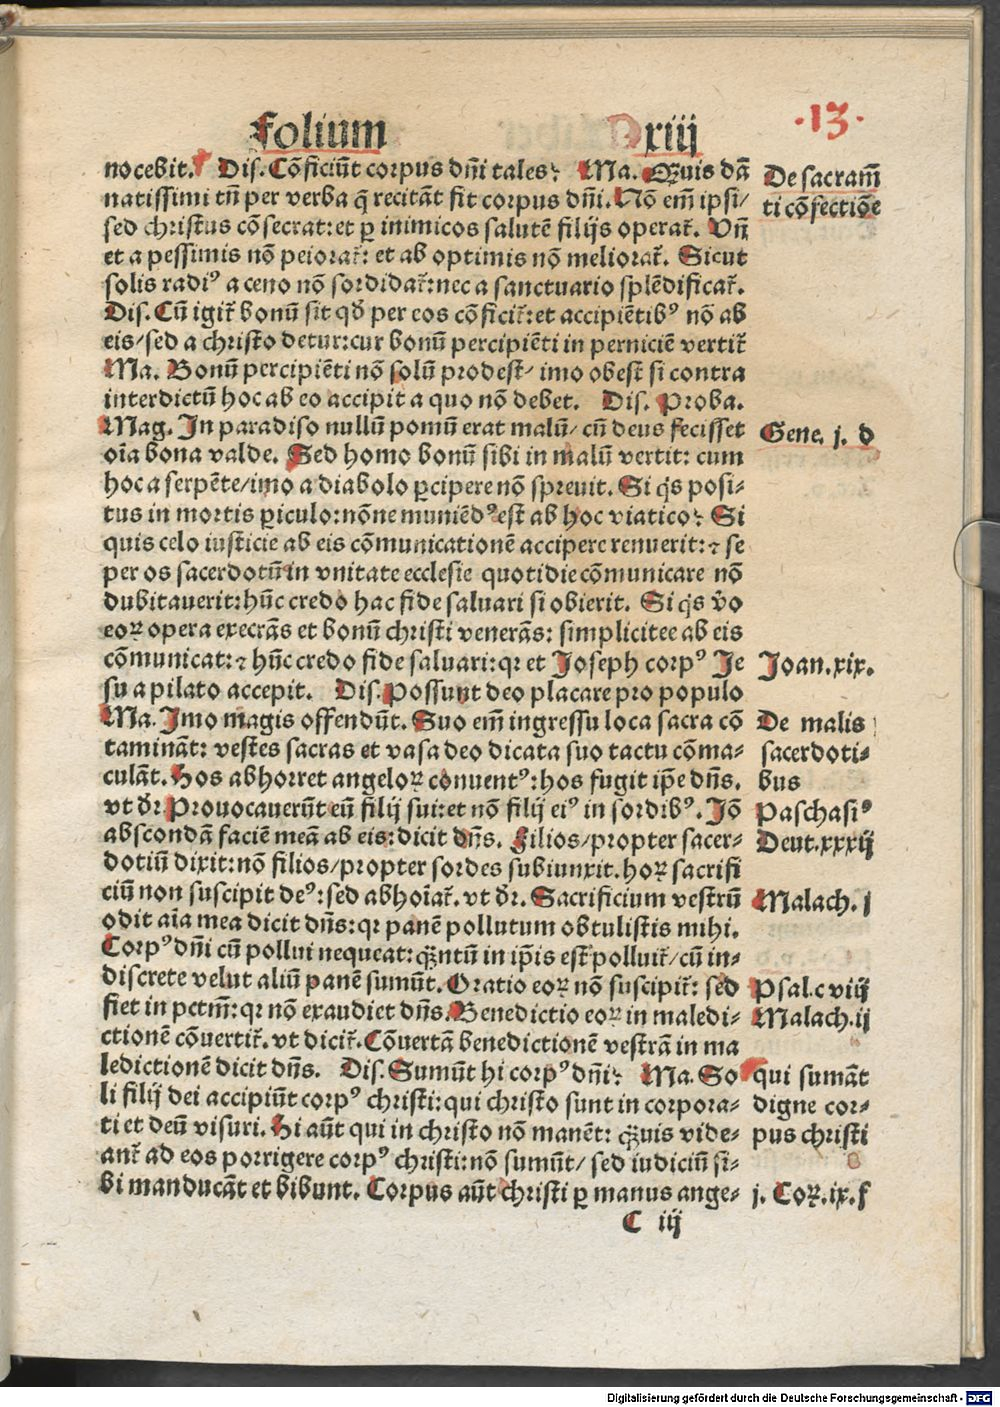 folium xiij
·13·
nocebit. Dis. Cōficiūt corpus dn̄i tales: Ma. Quis dā
natissimi tn̄ per verba q̄ recitāt fit corpus dn̄i. Nō em̄ ipsi/
sed christus cōsecrat: et ꝑ inimicos salutē filijs operat̄. Vn̄
et a pessimis nō peiorat̄: et ab optimis nō meliorat̄. Sicut
solis radiꝰ a ceno nō sordidat̄: nec a sanctuario splēdificat̄.
Dis. Cū igit̄ bonū sit qđ per eos cōficit̄: et accipiētibꝰ nō ab
eis/ sed a christo detur: cur bonū percipiēti in perniciē vertit̄
Ma. Bonū percipiēti nō solū prodest/ imo obest si contra
interdictū hoc ab eo accipit a quo nō debet. Dis. Proba.
Mag. In paradiso nullū pomū erat malū/ cū deus fecisset
oīa bona valde. Sed homo bonū sibi in malū vertit: cum
hoc a serpēte/ imo a diabolo ꝑcipere nō spreuit. Si q̇s posi-
tus in mortis ꝑiculo: nōne muniēdꝰ est ab hoc viatico: Si
quis celo iusticie ab eis cōmunicationē accipere renuerit: ⁊ se
per os sacerdotū in vnitate ecclesie quotidie cōmunicare nō
dubitauerit: hūc credo hac fide saluari si obierit. Si q̇s v̊o
eoꝝ opera execrās et bonū christi venerās: simplicitee ab eis
cōmunicat: ⁊ hūc credo fide saluari: qꝛ et Joseph corpꝰ Je
su a pilato accepit. Dis. Possunt deo placare pro populo
Ma. Imo magis offendūt. Suo em̄ ingressu loca sacra cō
tamināt: vestes sacras et vasa deo dicata suo tactu cōma-
culāt. Hos abhorret angeloꝝ conuentꝰ: hos fugit ip̄e dn̄s.
vt dr̄. Prouocauerūt eū filij sui: et nō filij eiꝰ in sordibꝰ. Jō
abscondā faciē meā ab eis: dicit dn̄s. Filios/ propter sacer-
dotiū dixit: nō filios/ propter sordes subiunxit. hoꝝ sacrifi
ciū non suscipit deꝰ: sed abhoīat̄. vt dr̄. Sacrificium vestrū
odit aīa mea dicit dn̄s: qꝛ panē pollutum obtulistis mihi.
Corpꝰ dn̄i cū pollui nequeat: q̄ntū in ip̄is est polluit̄/ cū in-
discrete velut aliū panē sumūt. Oratio eoꝝ nō suscipit̄: sed
fiet in pctm̄: qꝛ nō exaudiet dn̄s. Benedictio eoꝝ in maledi-
ctionē cōuertit̄. vt dicit̄. Cōuertā benedictionē vestrā in ma
ledictionē dicit dn̄s. Dis. Sumūt hi corpꝰ dn̄i: Ma. So
li filij dei accipiūt corpꝰ christi: qui christo sunt in corpora-
ti et deū visuri. Hi aūt qui in christo nō manēt: q̄uis vide-
ant̄ ad eos porrigere corpꝰ christi: nō sumūt/ sed iudiciū si-
bi manducāt et bibunt. Corpus aūt christi ꝑ manus ange-
C iij
De sacram̄
ti cōfectiōe
Gene. j. d
Joan. xix.
De malis
sacerdoti-
bus
Paschasiꝰ
Deut. xxxij
Malach. j
Psal. c viij
Malach. ij
qui sumāt
digne cor-
pus christi
j. Coꝝ. ix. f
Digitalisierung gefördert durch die Deutsche Forschungsgemeinschaft - DFG